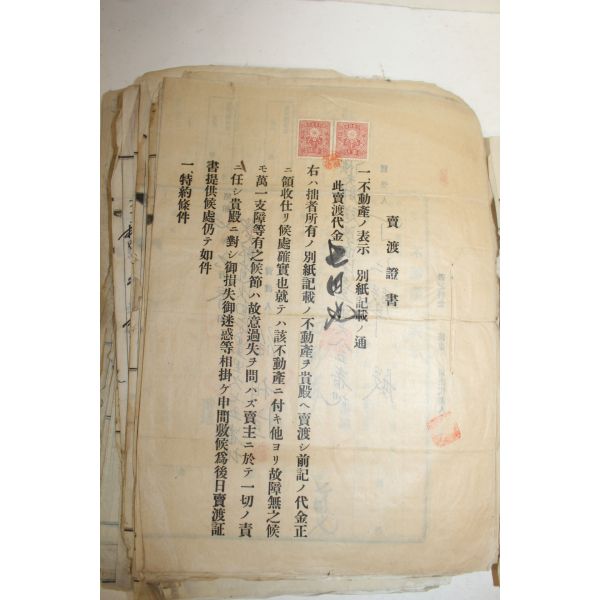 賣渡證書
一不動產ノ表示 別紙記載ノ通
此賣渡代金
右ハ拙者所有ノ別紙記載ノ不動產ヲ貴殿ヘ賣渡シ前記ノ代金正
ニ領收仕リ候處確實也就テハ該不動產ニ付キ他ヨリ故障無之候
モ萬一支障等有之候節ハ故意過失ヲ問ハズ賣主ニ於テ一切ノ責
ニ任シ貴殿ニ對シ御損失御迷惑等相掛ケ申間敷候爲後日賣渡証
書提供候處仍テ如件
一特約條件